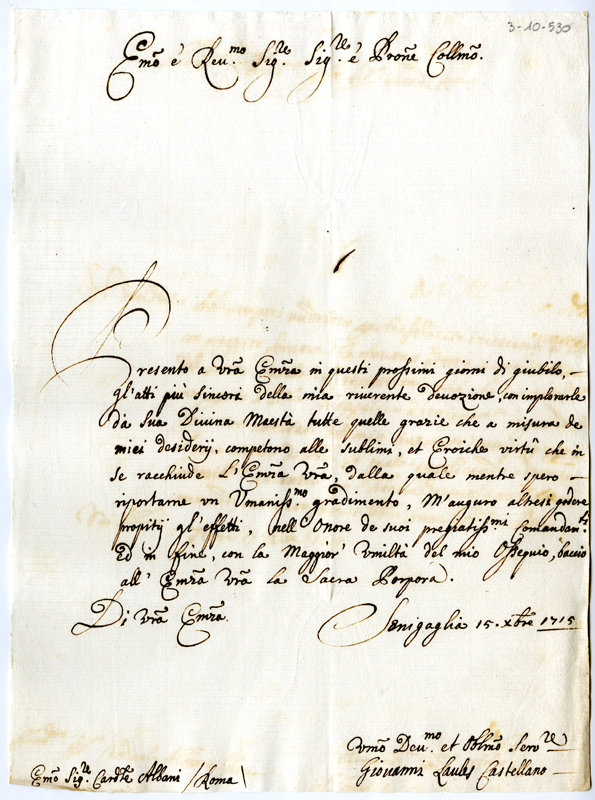 3-10-530
Emõ è Reu.mo Sig.re Sig.re è Prõne Collmõ.
Presento a Vrã Emz̃a in questi prossimi giorni di giubilo, –
gl'atti più sinceri della mia riverente deuozione, con implorarle
da Sua Diuina Maestà tutte quelle grazie che a misura de
miei desiderij, competono alle sublimi, et Eroiche virtù che in
se racchiude L'Emz̃a Vrã, dalla quale mentre spero –
riportarne vn Vmaniss.mo gradimento, M'auguro altresi godere
propitij gl'effetti, nell'Onore de suoi pregiatiss.mi Comandam.ti
Ed in fine, con la Maggior' Vmiltà del mio Ossequio, baccio
all' Emz̃a Vrã la Sacra Porpora.
Di Vrã Emz̃a
Senigaglia 15. Xbre 1715
Vmõ Deu.mo et Oblmõ Sero.re
Giovanni Castellano
Emõ Sig.re Cardle Albani / Roma \